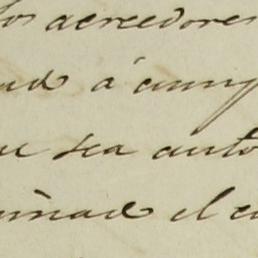 los acreedores
ad á cump
ue sea auto
uinad el c